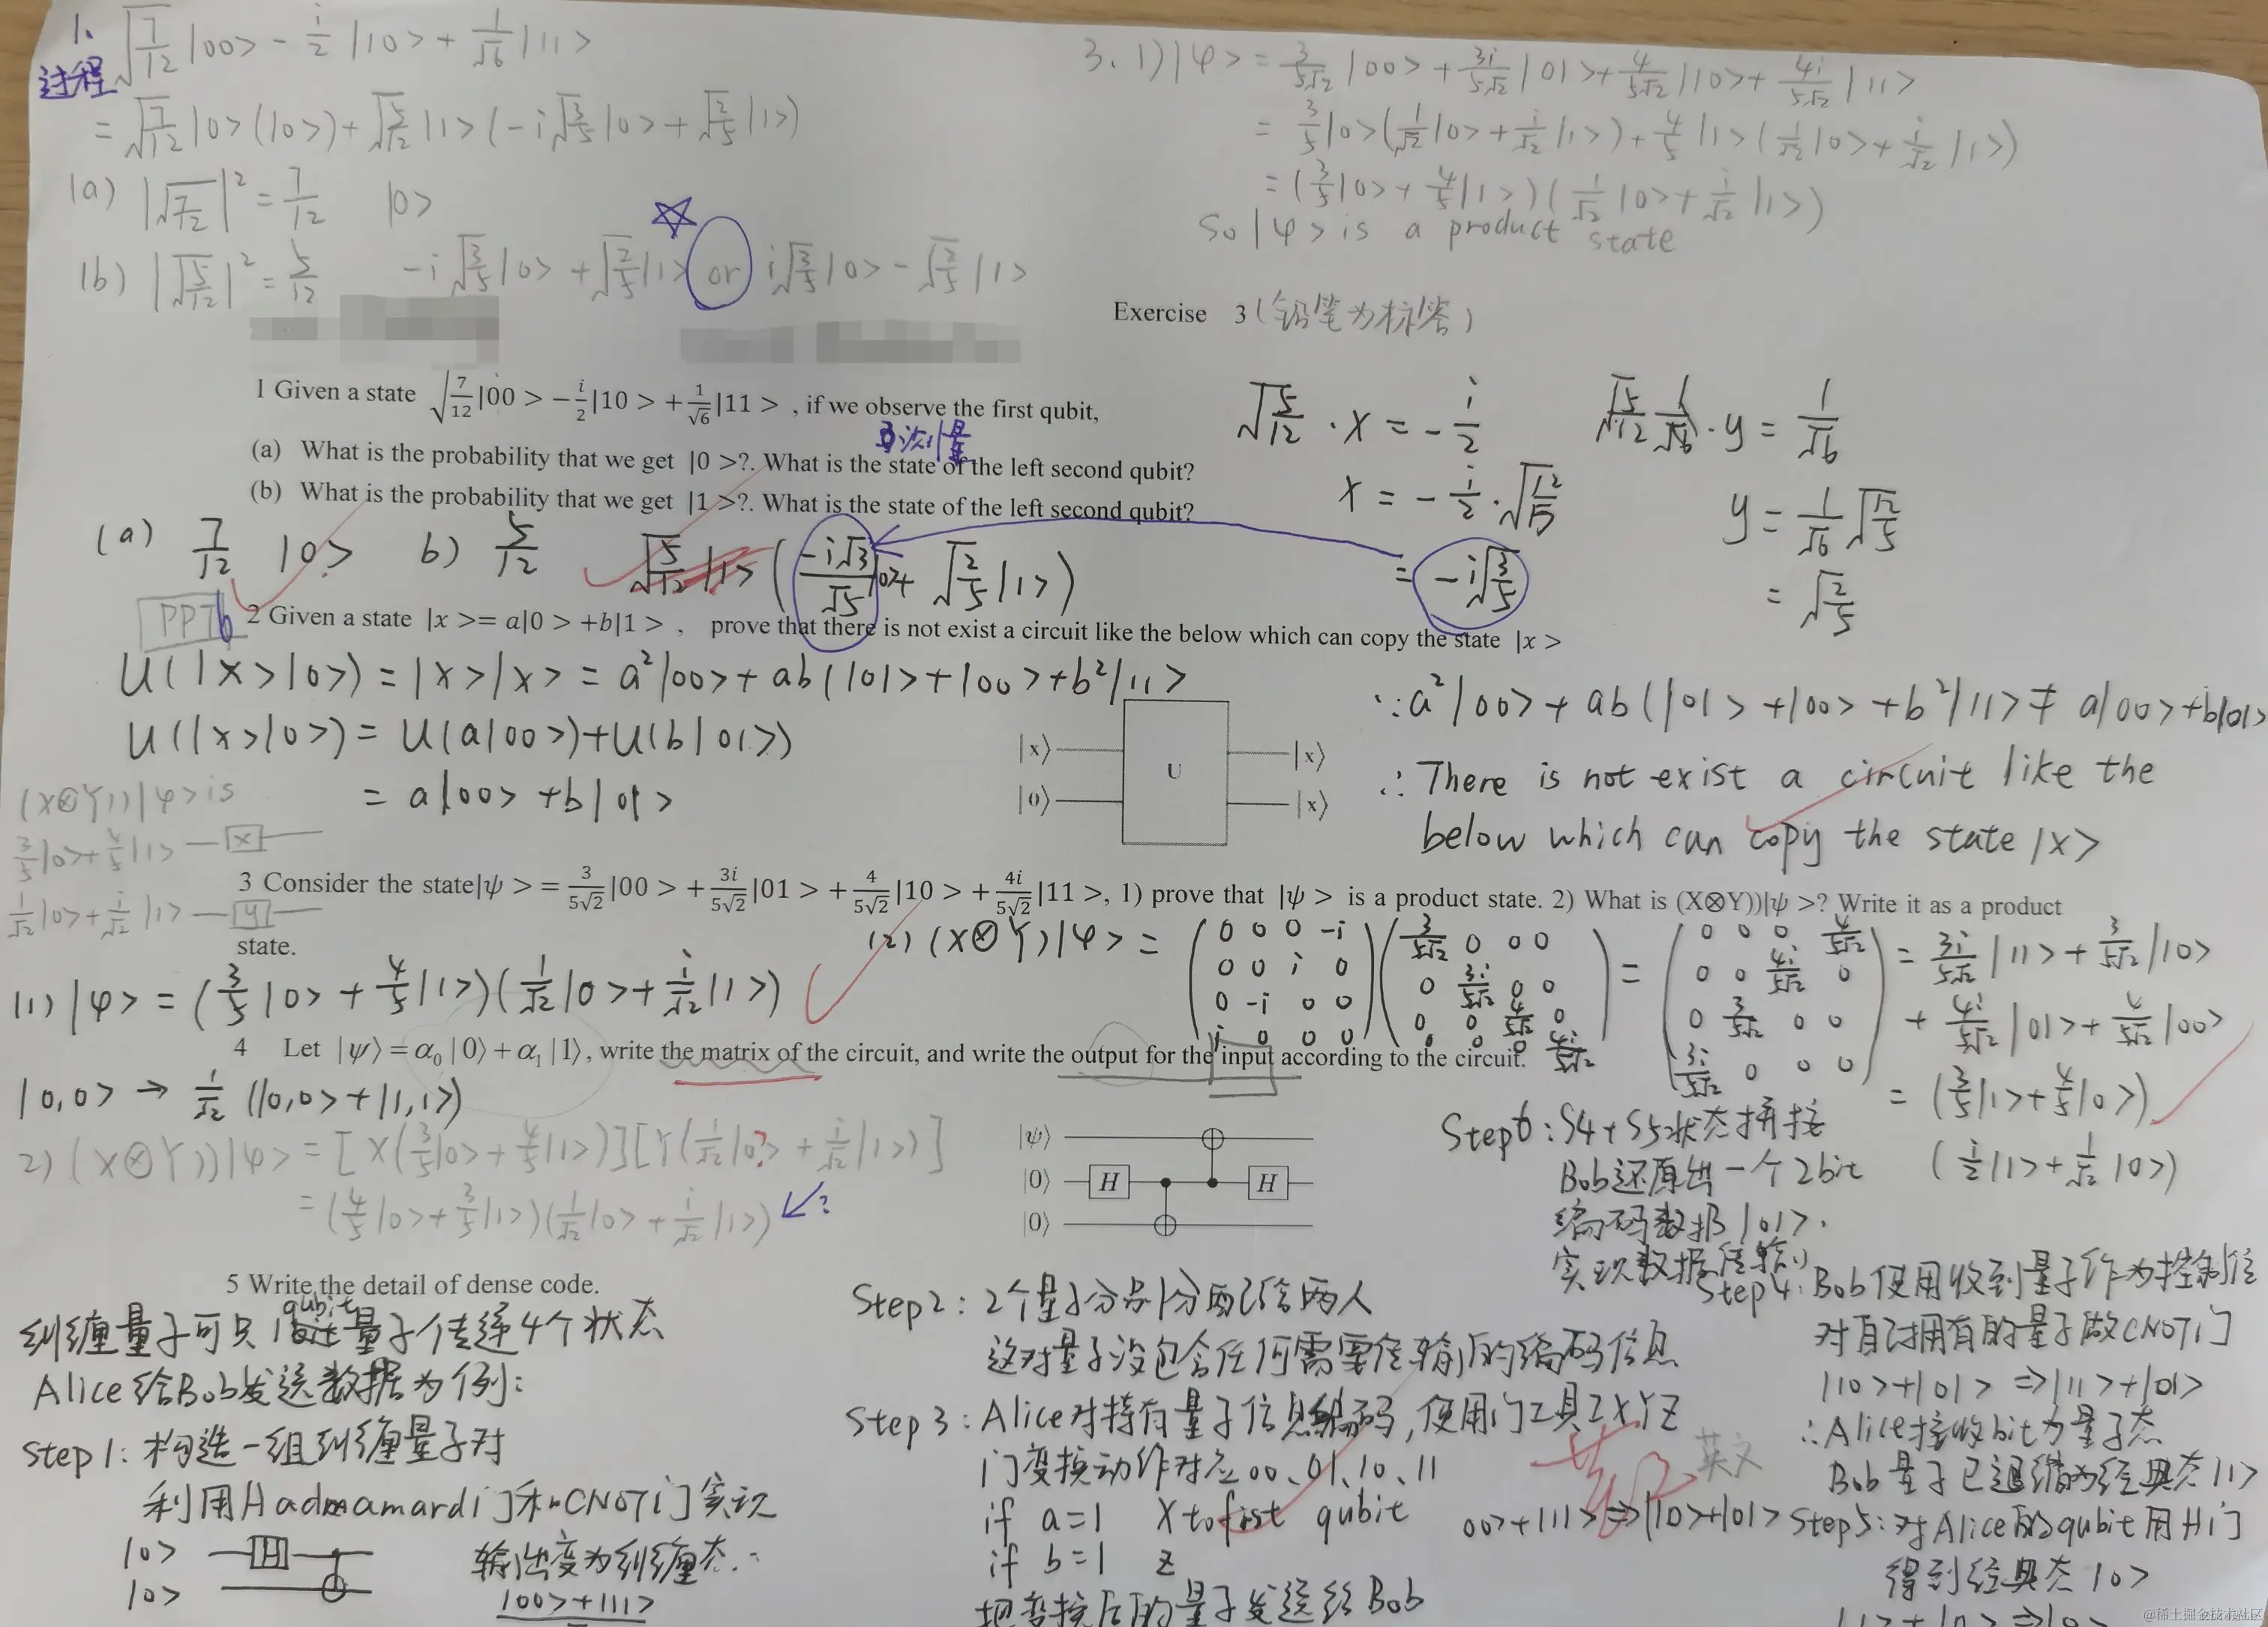 1. √(7/12) |00> - i/2 |10> + 1/√6 |11>
过程
= √(7/12) |0>(|0>) + √(5/12) |1>(-i√(3/5) |0> + √(2/5) |1>)
(a) |√(7/12)|² = 7/12 |0>
(b) |√(5/12)|² = 5/12 -i√(3/5) |0> + √(2/5) |1> or i√(3/5) |0> - √(2/5) |1>
3. 1) |φ> = 3/(5√2) |00> + 3i/(5√2) |01> + 4/(5√2) |10> + 4i/(5√2) |11>
= 3/5 |0>(1/√2 |0> + i/√2 |1>) + 4/5 |1>(1/√2 |0> + i/√2 |1>)
= (3/5 |0> + 4/5 |1>)(1/√2 |0> + i/√2 |1>)
So |φ> is a product state
Exercise 3 (铅笔为标答)
1 Given a state √(7/12)|00 > - i/2|10 > + 1/√6|11 > , if we observe the first qubit,
(a) What is the probability that we get |0 >?. What is the state of the left second qubit?
(b) What is the probability that we get |1 >?. What is the state of the left second qubit?
√(5/12) · x = - i/2
x = - i/2 · √(12/5)
= -i√(3/5)
· y = 1/√6
y = 1/√6 √(12/5)
= √(2/5)
(a) 7/12 |0> b) 5/12 √(5/12) |1> (-i√3/√5 |0>+ √(2/5) |1>)
PPT6
2 Given a state |x >= a|0 > +b|1 > , prove that there is not exist a circuit like the below which can copy the state |x >
U(|x>|0>) = |x>|x> = a²|00> + ab(|01>+|00>+b²|11>
U(|x>|0>) = U(a|00>)+U(b|01>)
= a|00> +b|01>
|x⟩ U |x⟩
|0⟩ |x⟩
∵a²|00> + ab(|01> +|00> +b²|11> ≠ a|00>+b|01>
∴ There is not exist a circuit like the
below which can copy the state |x>
(X⊗Y))|φ> is
3/5|0>+4/5|1> — X —
1/√2|0>+i/√2|1> — y —
3 Consider the state|ψ > = 3/(5√2)|00 > + 3i/(5√2)|01 > + 4/(5√2)|10 > + 4i/(5√2)|11 >, 1) prove that |ψ > is a product state. 2) What is (X⊗Y))|ψ >? Write it as a product
state.
(1) |φ> = (3/5 |0> + 4/5 |1>)(1/√2 |0> + i/√2 |1>)
(2) (X⊗Y)|φ> = (0 0 0 -i; 0 0 i 0; 0 -i 0 0; i 0 0 0)(3/(5√2) 0 0 0; 0 3i/(5√2) 0 0; 0 0 4/(5√2) 0; 0 0 0 4i/(5√2)) = (0 0 0 4/(5√2); 0 0 4i/(5√2) 0; 0 3/(5√2) 0 0; 3i/(5√2) 0 0 0) = 3i/(5√2) |11> + 3/(5√2) |10>
+ 4i/(5√2) |01> + 4/(5√2) |00>
= (3/5|1>+4/5|0>)
(i/2|1>+1/√2 |0>)
4 Let |ψ⟩ = α₀|0⟩ + α₁|1⟩, write the matrix of the circuit, and write the output for the input according to the circuit.
|0,0> → 1/√2 (|0,0> + |1,1>)
2) (X⊗Y))|φ> = [X(3/5|0> + 4/5|1>)][Y(1/√2|0> + i/√2|1>)]
= (4/5|0> + 3/5|1>)(1/√2|0> + i/√2|1>) ?
|ψ⟩
|0⟩ H H
|0⟩
5 Write the detail of dense code.
qubit
纠缠量子可只 量子传递4个状态
Alice给Bob发送数据为例:
Step 1: 构造一组纠缠量子对
利用Hadmamard门和CNOT门实现
|0> H
|0>
输出变为纠缠态:
|00>+|11>
Step 2: 2个量子分别分配给两人
这对量子没包含任何需要传输的编码信息
Step 3: Alice对持有量子信息编码, 使用门工具I X Y Z
门变换动作对应00、01、10、11
if a=1 X to fist qubit
if b=1 z
把变换后的量子发送给Bob
英文
00>+|11> ⇒ |10>+|01>
Step 4: Bob使用收到量子作为控制位
对自己拥有的量子做CNOT门
|10>+|01> ⇒ |11>+|01>
∴Alice接收bit为量子态
Bob量子已退缩为经典态|1>
Step 5: 对Alice的qubit用H门
得到经典态|0>
Step 6: S4+S5状态拼接
Bob还原出一个2bit
编码数据|01>.
实现数据传输
@稀土掘金技术社区